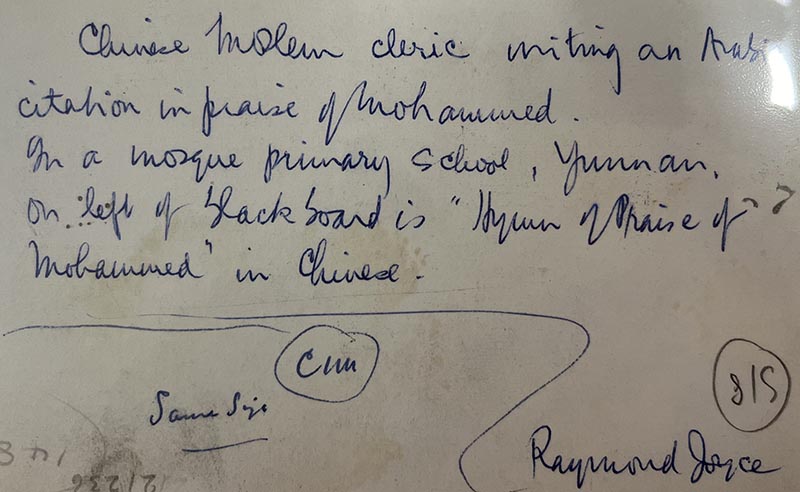 Chinese Moslem cleric writing an Arabi
citation in praise of Mohammed.
In a mosque primary school, Yunnan.
On left of blackboard is "Hymn of Praise of
Mohammed" in Chinese.
CIM
Same Size
Raymond Joyce